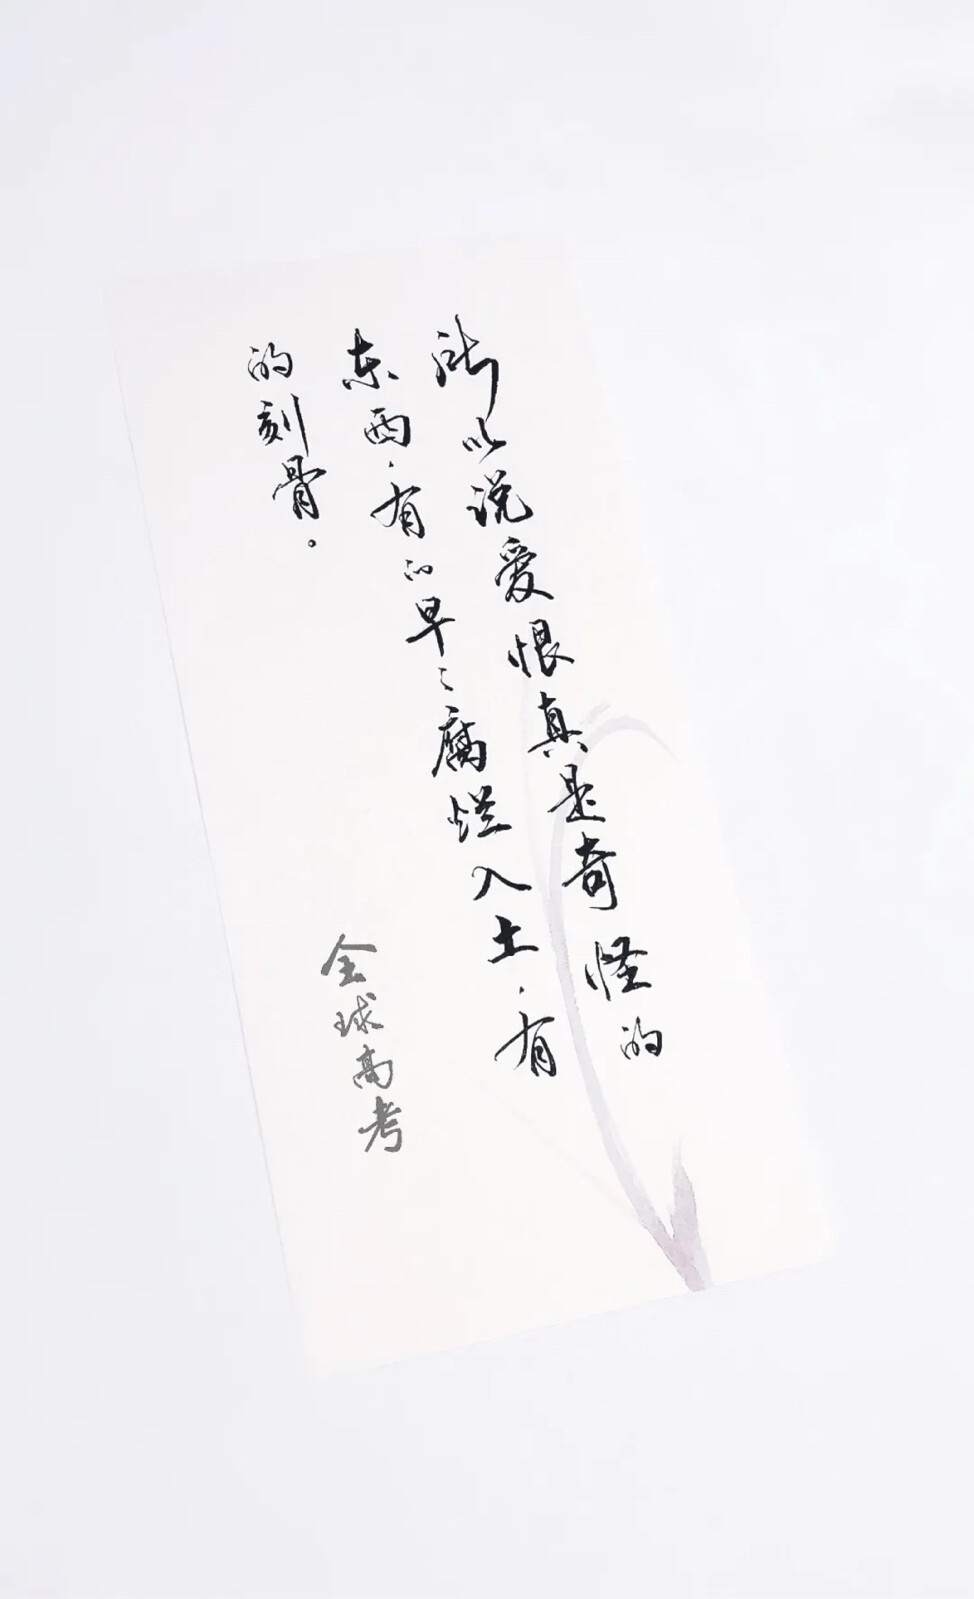 所以说爱恨真是奇怪的
东西.有的早々腐烂入土.有
的刻骨。
全球高考